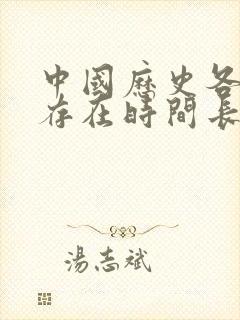 中國歷史各
存在時間長
湯志斌